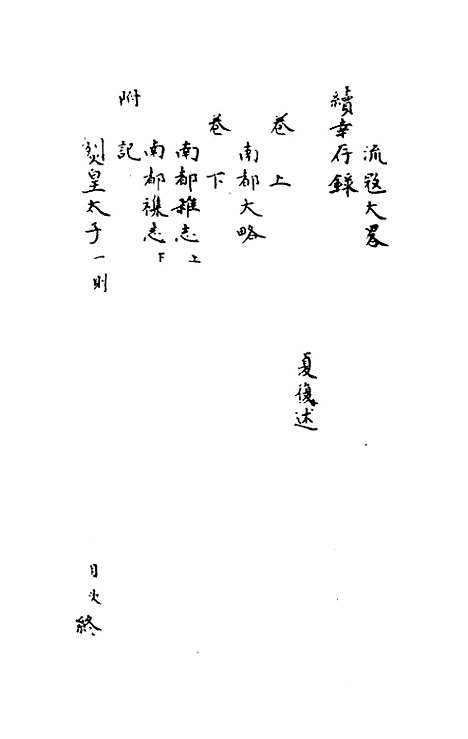 流寇大畧
續幸存錄
夏復述
卷上
南都大略
卷下
南都雜志上
南都襍志下
附記
烈皇太子一則
目次終